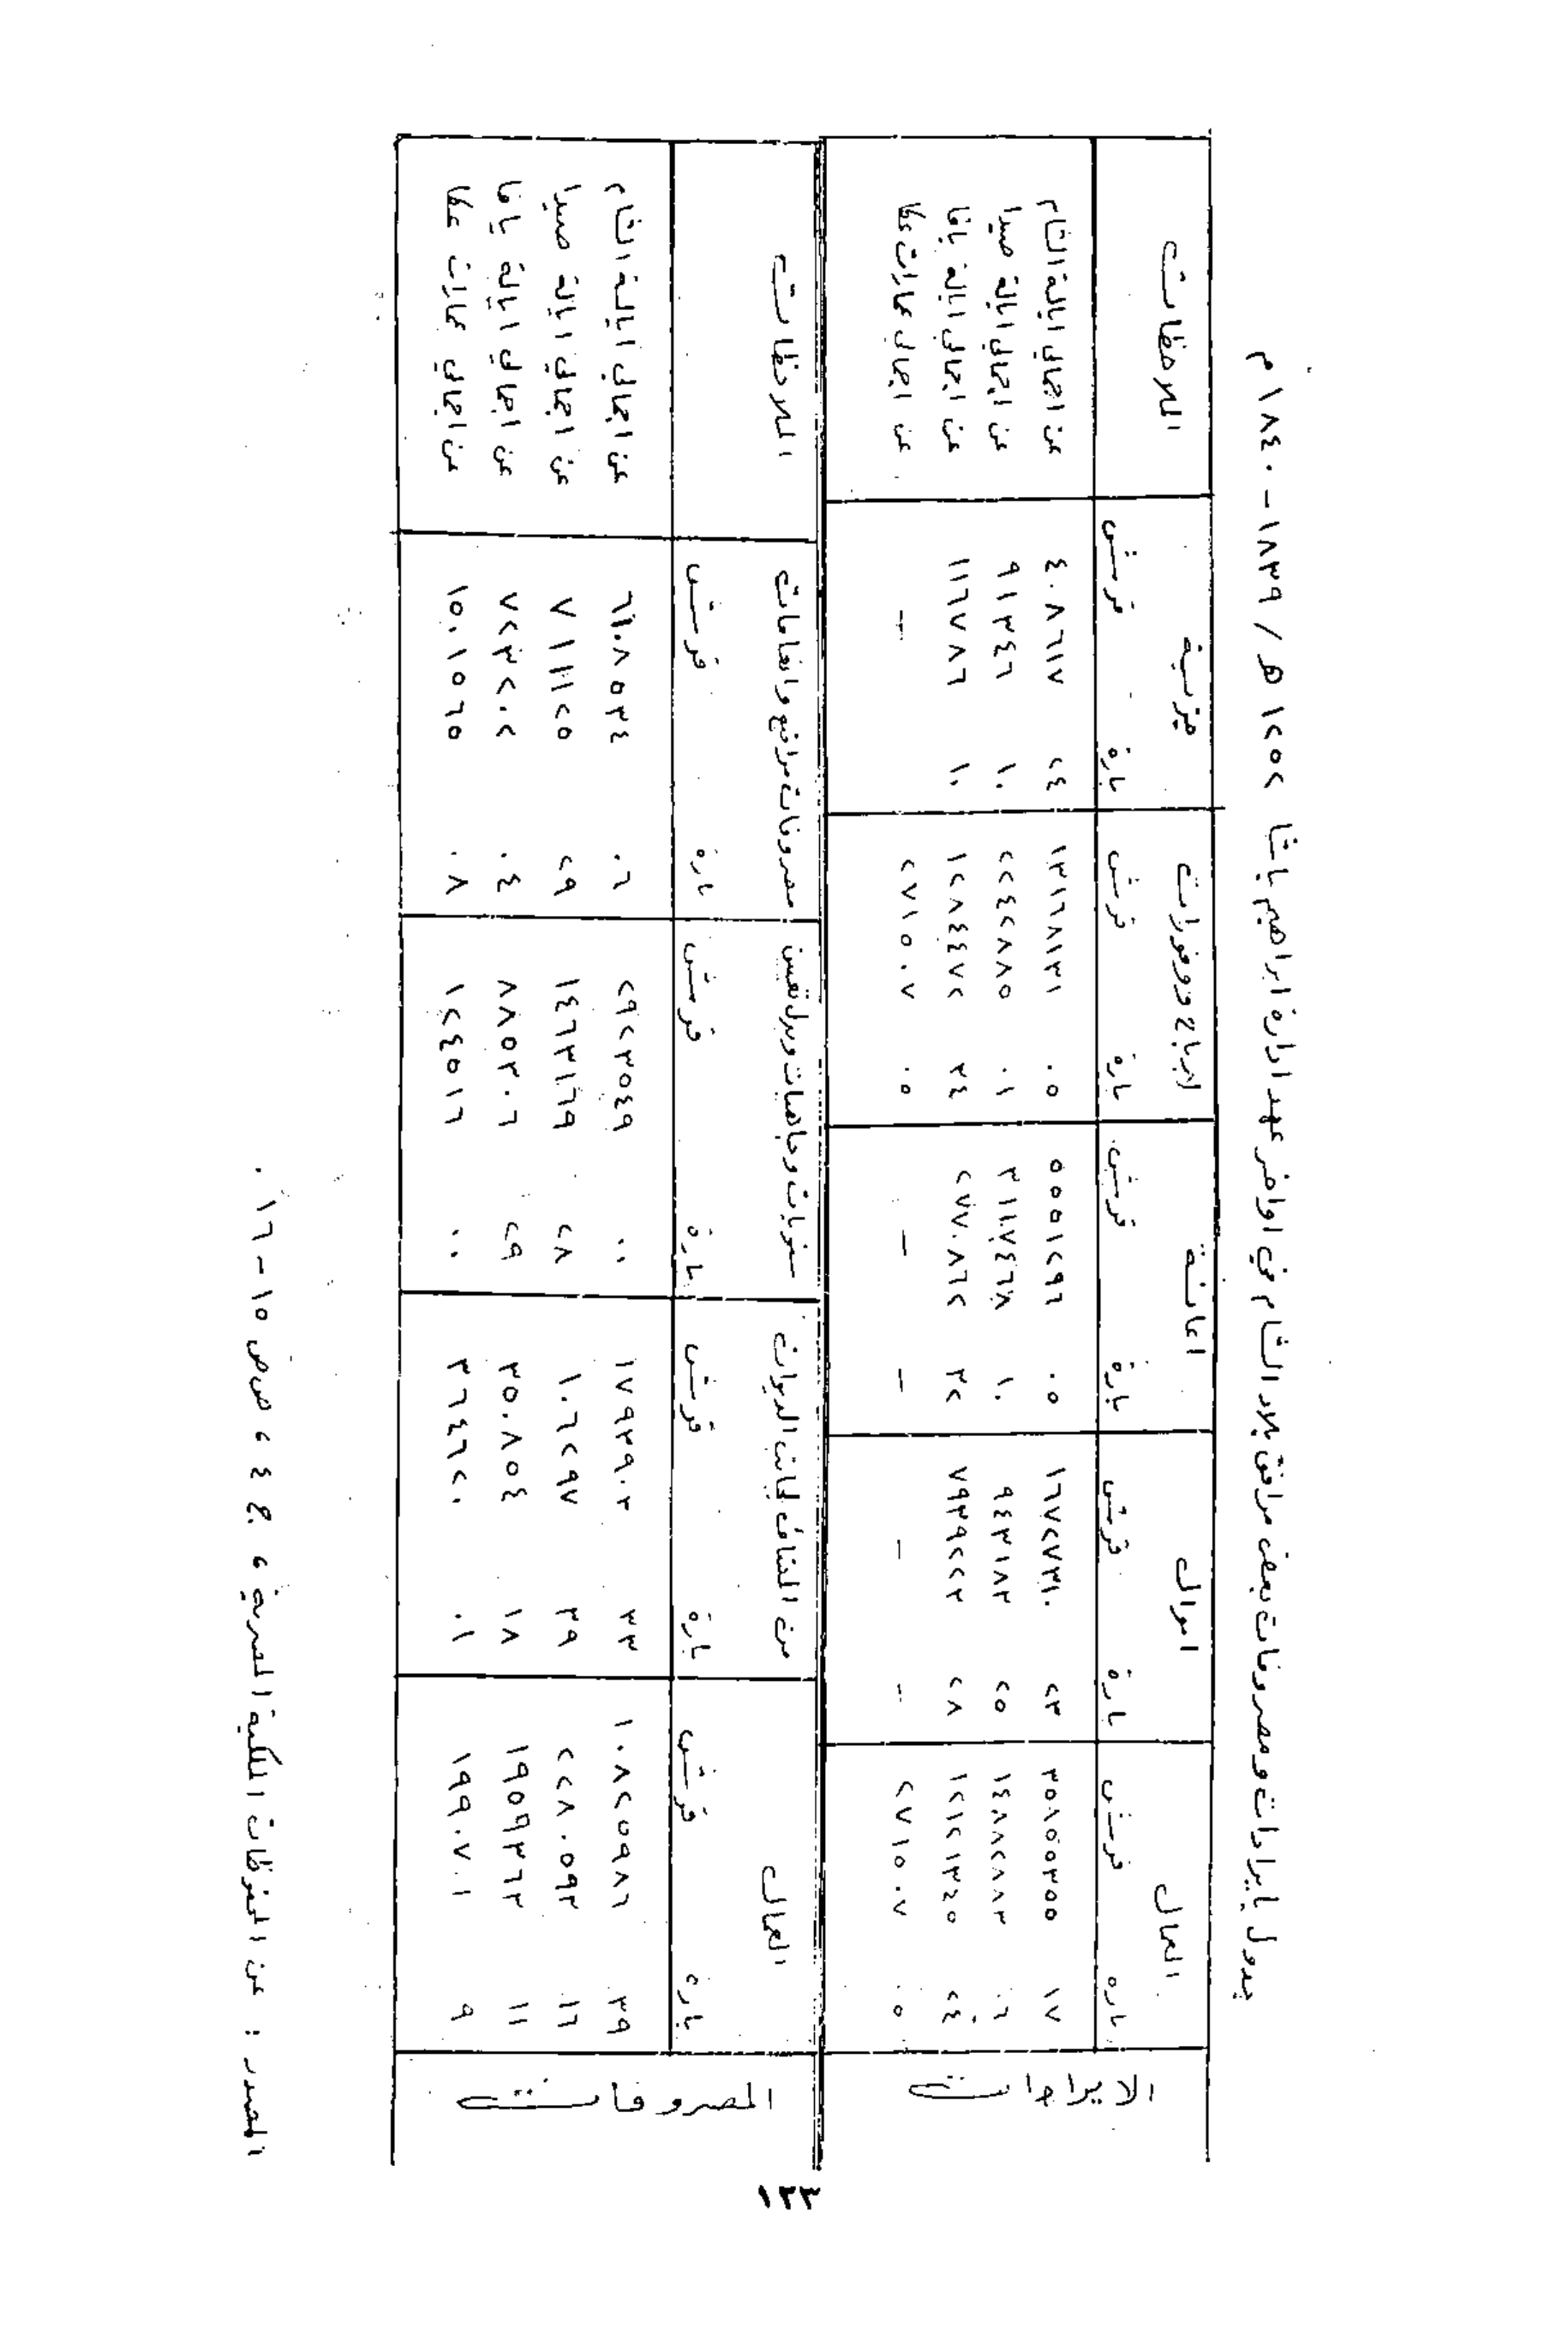 جدول بايرادات ومصروفات بعض مرافق بلاد الشام في اواخر عهد ادارة ابراهيم باشا ١٢٥٢ هـ / ١٨٣٩ - ١٨٤٠ م
الايرادات
الجمال اموال اعانة ارباح ووفورات ميزنية الملاحظات
قرش بارة قرش بارة قرش بارة قرش بارة قرش بارة
٣٥٨٥٥٣٥٥ ١٧ ١٦٧٢٧٣١٠ ٢٣ ٥٥٥١٢٩٦ ٠٥ ١٣١٦٨١٣١ ٠٥ ٤٠٨٦١٧ ٢٤ عن اجمالي ايالة الشام
١٤٨٨٢٨٨٣ ٠٦ ٩٤٣١١٨٣ ٢٥ ٣١١٧٤٦٨ ١٠ ٢٢٤٢٨٨٥ ٠١ ٩١٣٤٦ ١٠ عن اجمالي ايالة صيدا
١٢١٢١٣٤٥ ٢٤ ٧٩٣٩٢٢٣ ٢٨ ٢٧٧٠٨٦٢ ٣٢ ١٢٨٤٤٧٢ ٣٤ ١١٦٧٨٦ ١٠ عن اجمالي ايالة يافا
٢٧١٥٠٧ ٠٥ - - - - ٢٧١٥٠٧ ٠٥ - عن اجمالي عمارات عكا
المصروفات
الجمال من المتأخر لجانب الديوان سنويات وجاهيات وبدل تعيين مصروفات مرافيع وانعامات الملاحظات
قرش بارة قرش بارة قرش بارة قرش بارة
١٠٨٢٥٩٨٦ ٣٩ ١٧٩٣٩٠٣ ٣٣ ٢٩٢٣٥٤٩ ٠٠ ٦١٠٨٥٣٤ ٠٦ عن اجمالي ايالة الشام
٢٢٨٠٥٩٣ ١٦ ١٠٦٢٩٧ ٣٩ ١٤٦٣١٦٩ ٢٨ ٧١١١٢٥ ٢٩ عن اجمالي ايالة صيدا
١٩٥٩٣٦٣ ١١ ٣٥٠٨٥٤ ١٨ ٨٨٥٣٠٦ ٢٩ ٧٢٣٢٠٢ ٠٤ عن اجمالي ايالة يافا
١٩٩٠٧٠١ ٩ ٣٦٤٦٢٠ ٠١ ١٢٤٥١٦ ٠٠ ١٥٠١٥٦٥ ٠٨ عن اجمالي عمارات عكا
المصدر : عن المحفوظات الملكية المصرية ، ج ٤ ، ص ص ١٥ - ١٦ .
١٣٣